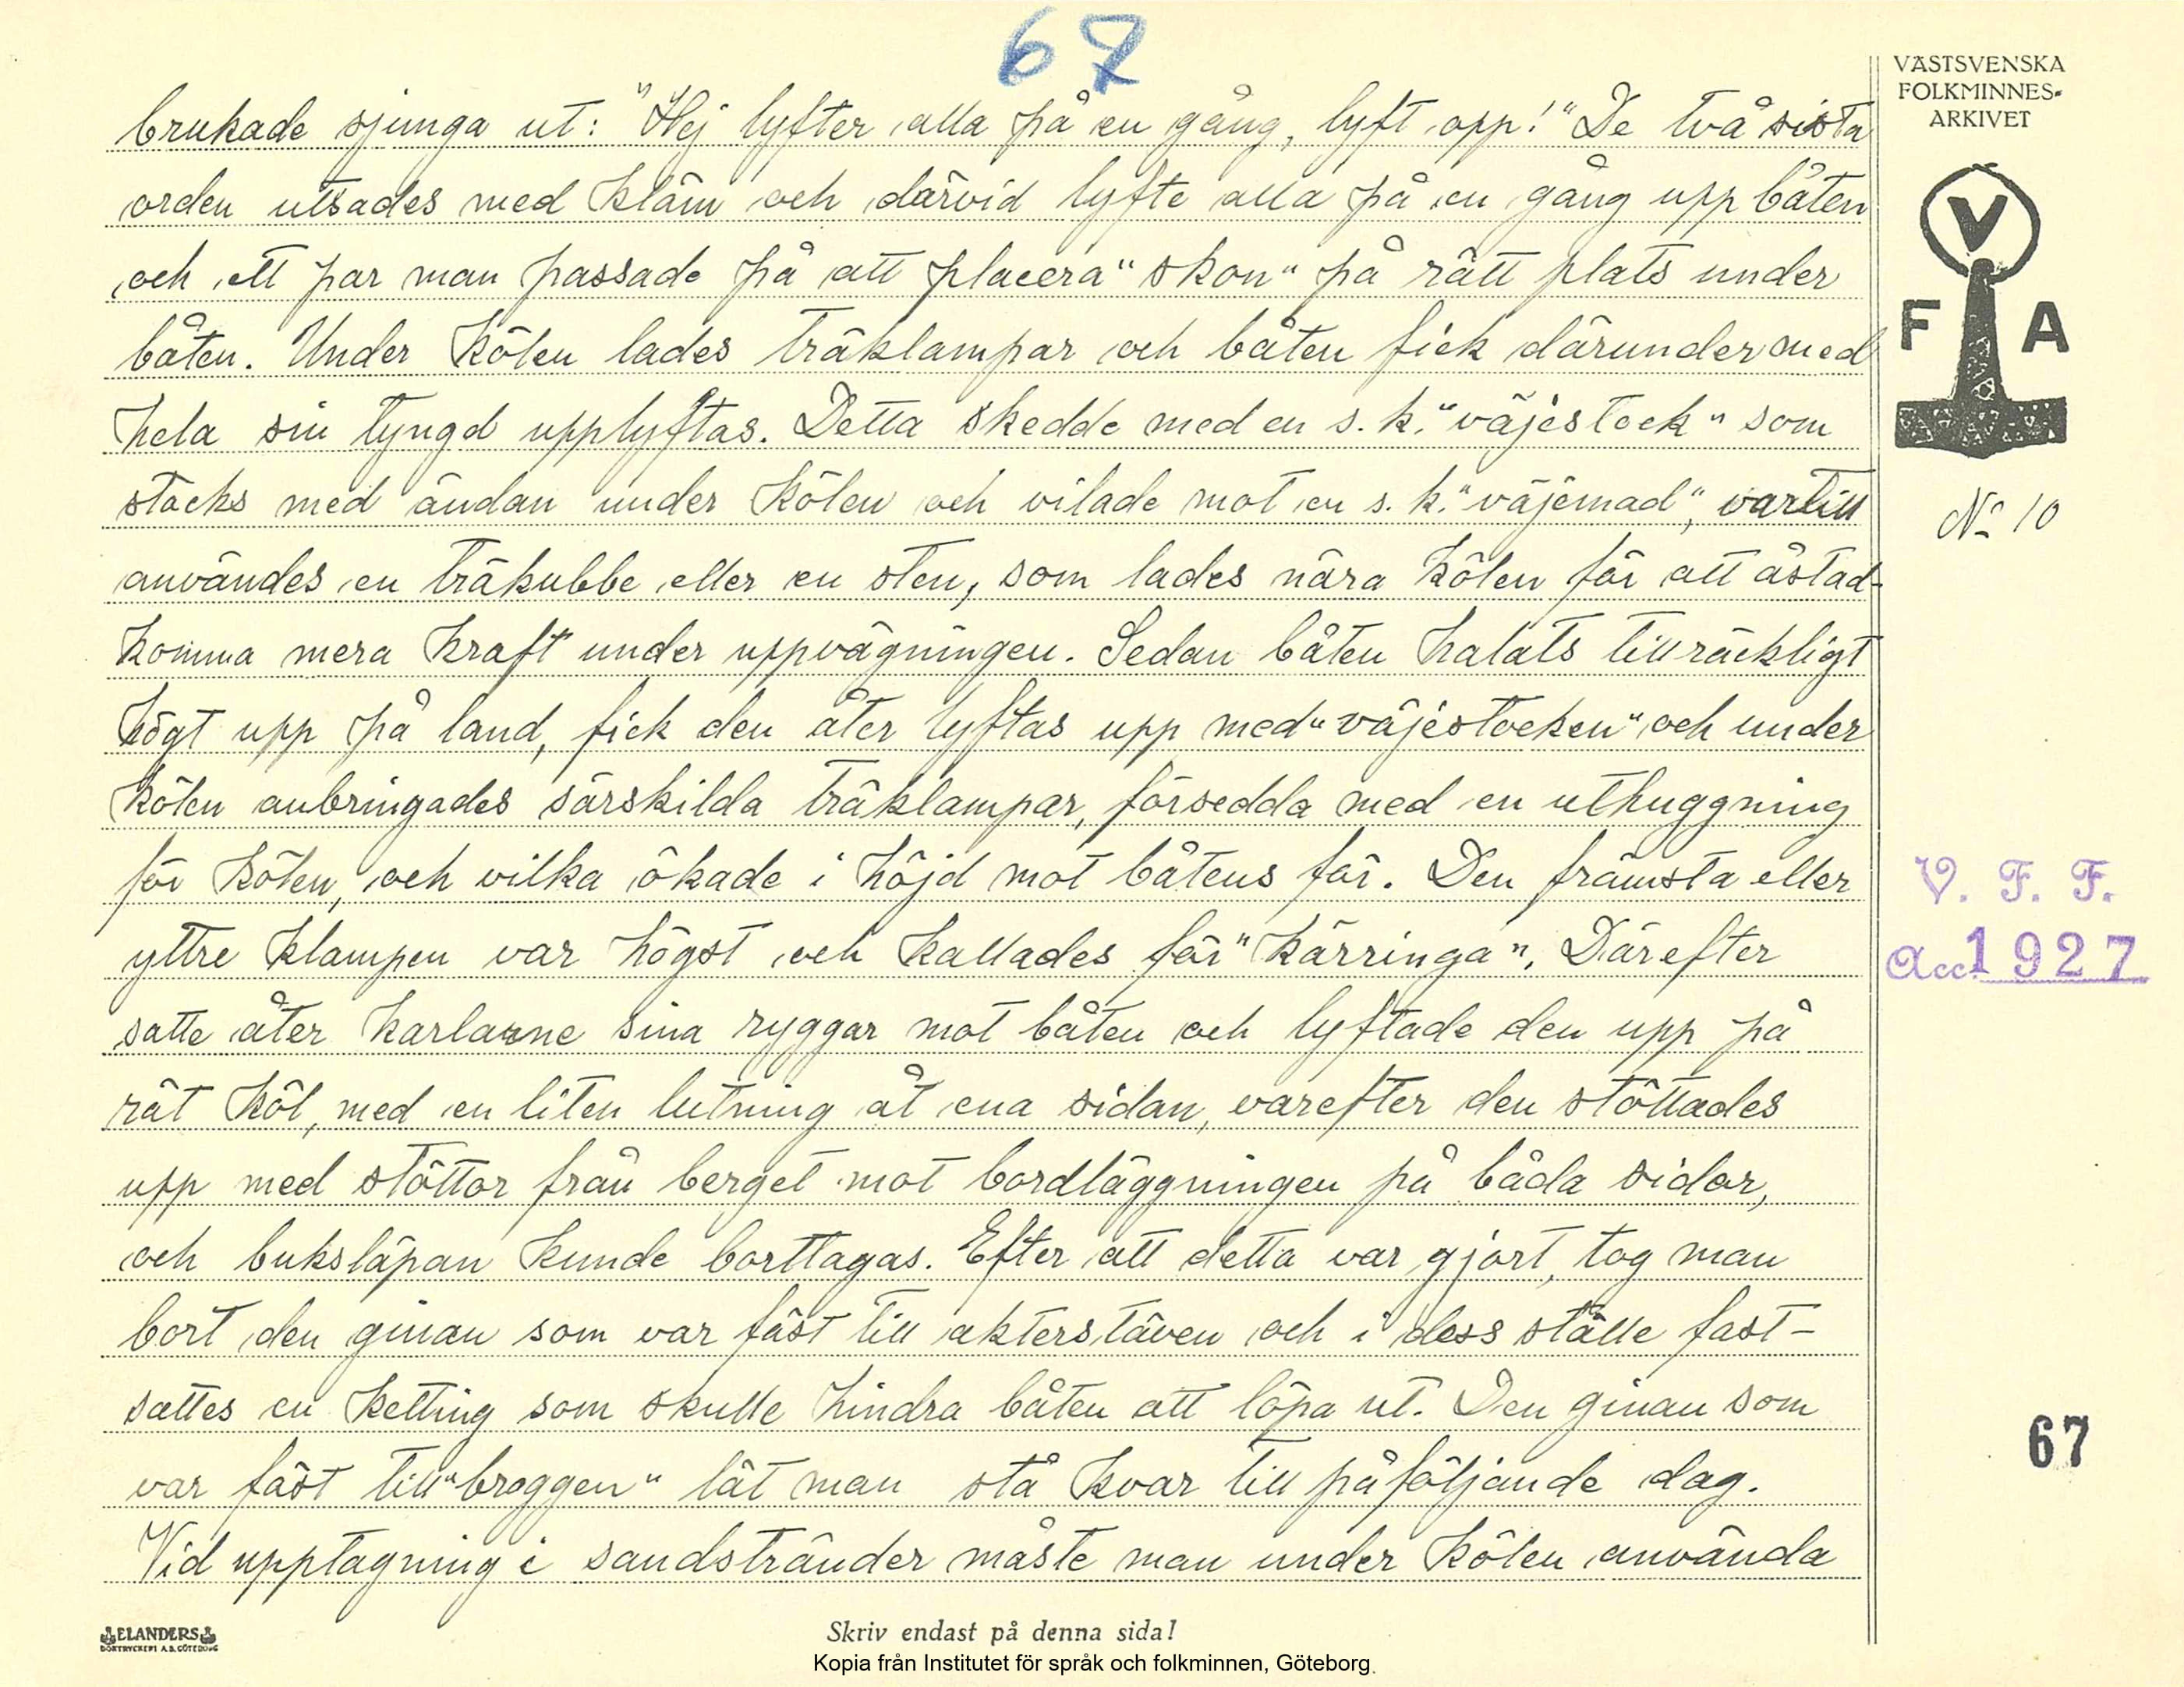 67
brukade sjunga ut: "Hej lyfter alla på en gång, lyft opp!" De två sista
orden utsades med kläm och därvid lyfte alla på en gång upp båten
och ett par man passade på att placera "skon" på rätt plats under
båten. Under kölen lades träklampar och båten fick därunder med
hela sin tyngd upplyftas. Detta skedde med en s.k. "väjestock" som
stacks med ändan under kölen och vilade mot en s.k. "väjemad", vartill
användes en träkubbe eller en sten, som lades nära kölen för att åstad-
komma mera kraft under uppvägningen. Sedan båten halats tillräckligt
högt upp på land, fick den åter lyftas upp med "väjestocken" och under
kölen anbringades särskilda träklampar, försedda med en uthuggning
för kölen, och vilka ökade i höjd mot båtens för. Den främsta eller
yttre klampen var högst och kallades för "kärringa". Därefter
satte åter karlarne sina ryggar mot båten och lyftade den upp på
rät köl, med en liten lutning åt ena sidan, varefter den stöttades
upp med stöttor från berget mot bordläggningen på båda sidor,
och buksläpan kunde borttagas. Efter att detta var gjort, tog man
bort den ginan som var fäst till akterstäven och i dess ställe fast-
sattes en ketting som skulle hindra båten att löpa ut. Den ginan som
var fäst till "broggen" lät man stå kvar till påföljande dag.
Vid upptagning i sandstränder måste man under kölen använda
VÄSTSVENSKA
FOLKMINNES-
ARKIVET
V
F A
No 10
V. F. F.
Acc. 1927
67
ELANDERS
BOKTRYCKERI A.B. GÖTEBORG
Skriv endast på denna sida!
Kopia från Institutet för språk och folkminnen, Göteborg.